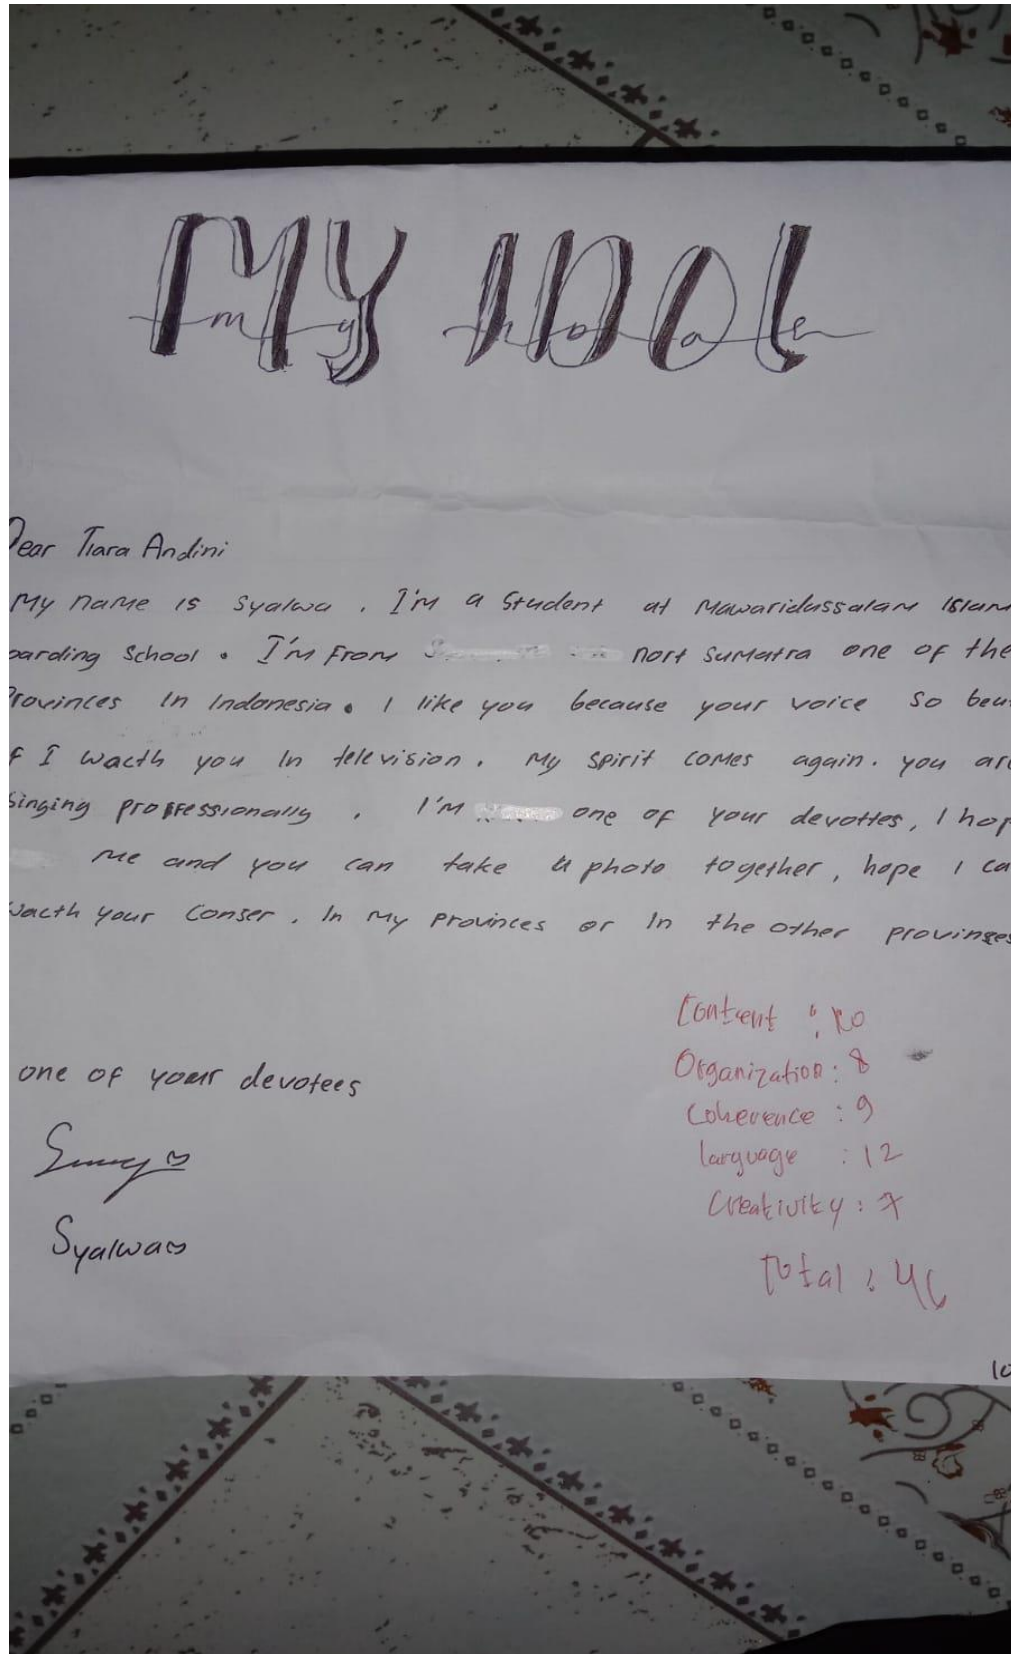 MY IDOL
Dear Tiara Andini
My name is Syalwa . I'm a student at Mawaridussalam Islam
oarding School . I'm From nort Sumatra one of the
Provinces In Indonesia . I like you because your voice so beu
f I wacth you In television . My spirit comes again . you are
Singing proffessionally , I'm one of your devottes , I hop
me and you can take a photo together , hope I ca
wacth your Conser . In my provinces or In the other provinges
one of your devotees
Syalwa
Content : 10
Organization : 8
Coherence : 9
language : 12
Creativity : 7
Total : 46
10